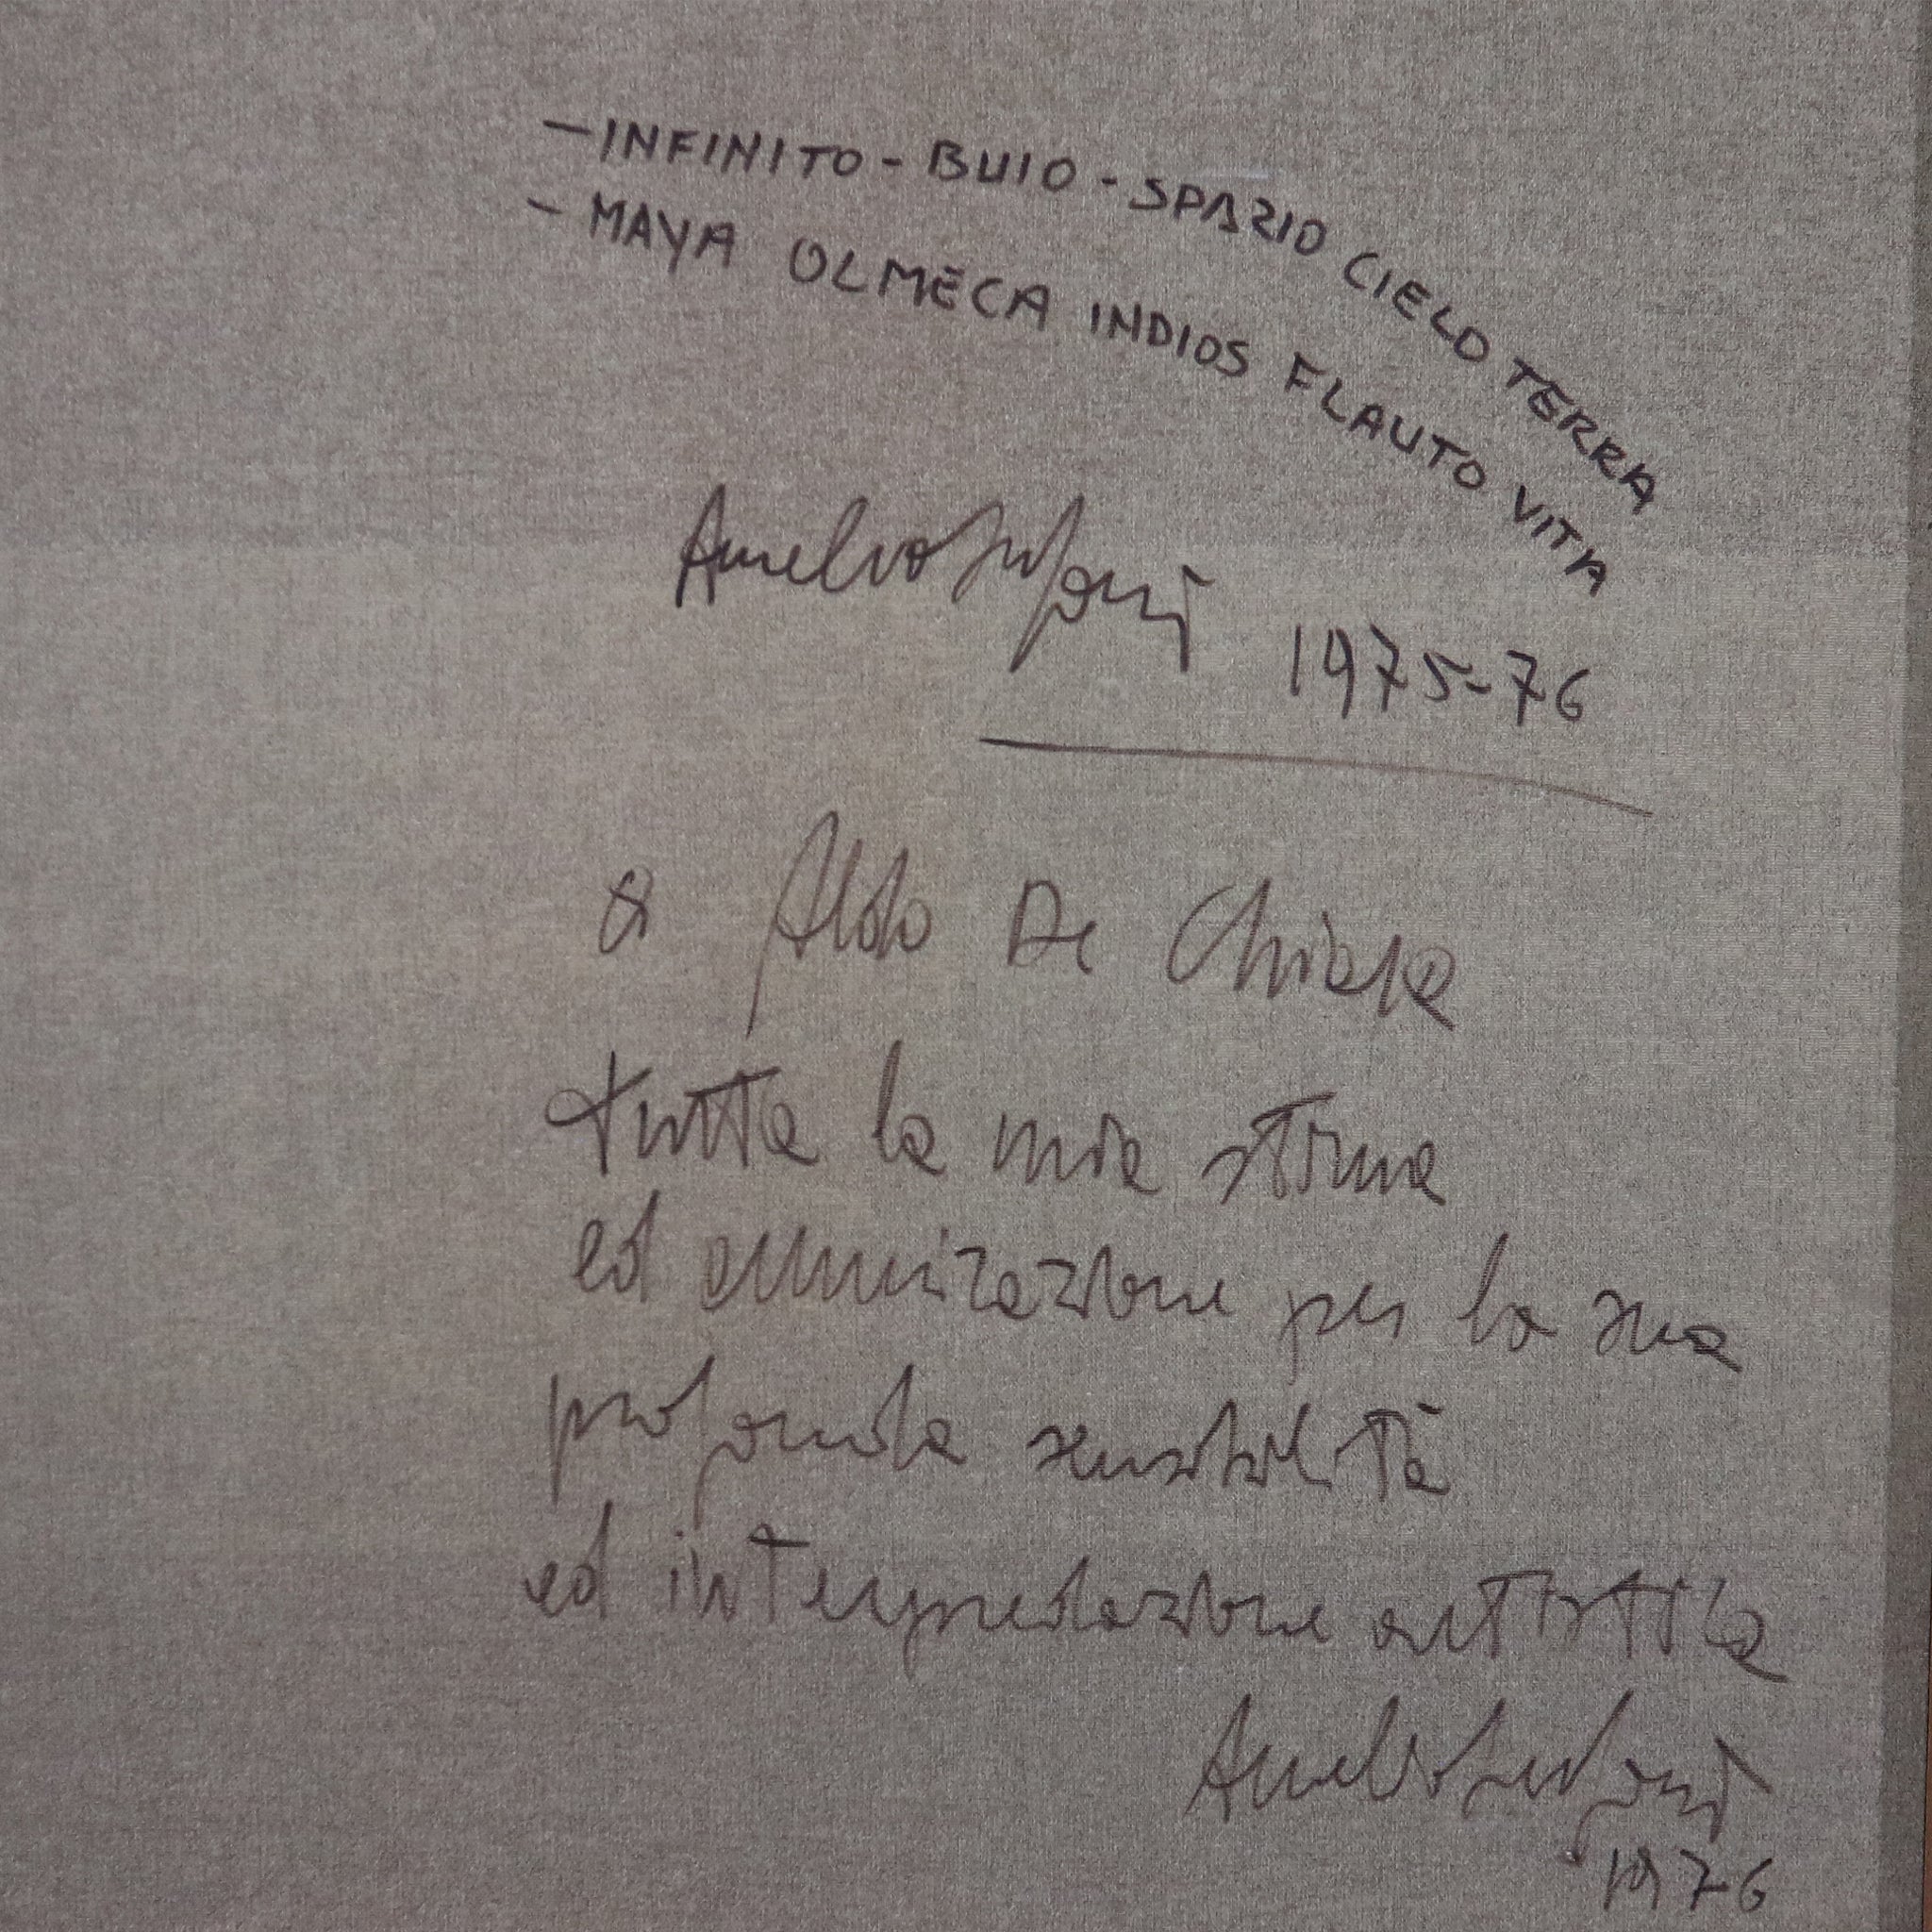 - INFINITO - BUIO - SPAZIO CIELO TERRA
- MAYA OLMECA INDIOS FLAUTO VITA
1975-76
a Aldo De Chiara
tutta la mia stima
ed ammirazione per la sua
profonda sensibilità
ed interpretazione artistica
1976